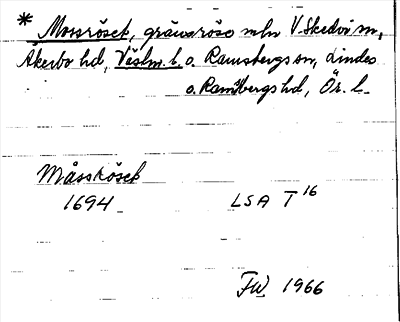 * Mossrösek, gränsröse mln V. Skedvi sn,
Åkerbo hd, Västm. l. o. Ramsbergs sn, Lindes
o. Ramsbergs hd, Ör. l.
Måssrösek
1694
LSA T 16
FW 1966